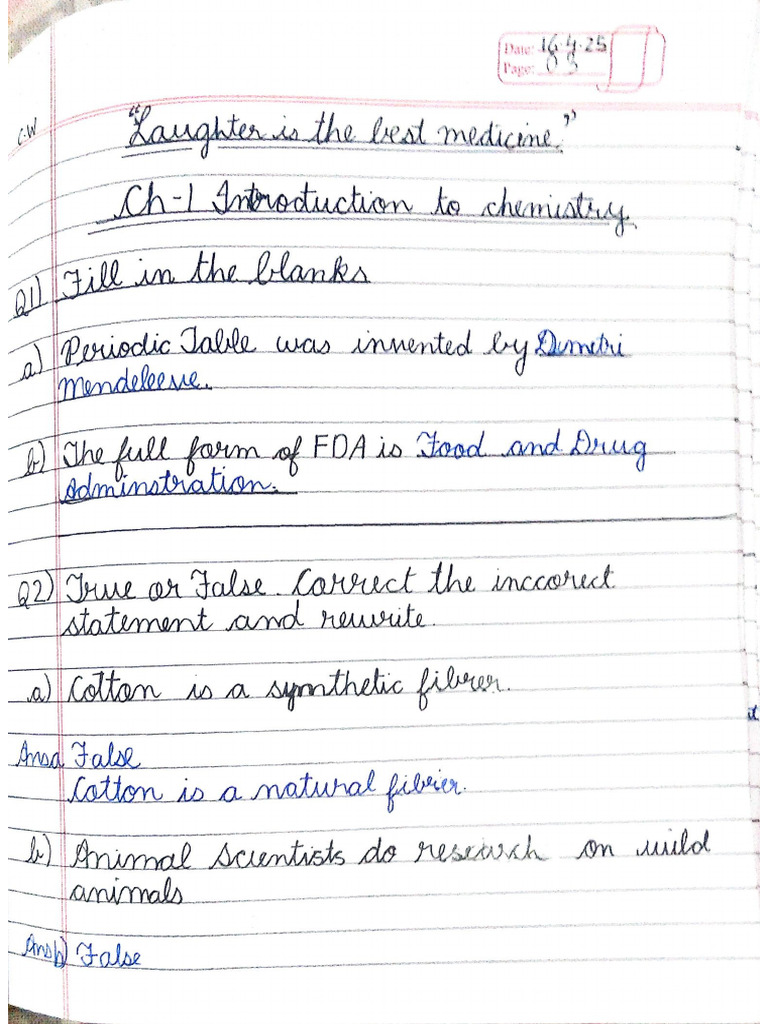 Date: 16.4.25
Page: 03
C.W
"Laughter is the best medicine."
Ch-1 Introduction to chemistry.
Q1) Fill in the blanks
a) Periodic Table was invented by Dimetri
Mendeleeve.
b) The full form of FDA is Food and Drug
Adminstration.
Q2) True or False. Correct the inccorect
statement and rewrite.
a) Cotton is a synthetic fibrer.
Ansa False
Cotton is a natural fibrer.
b) Animal scientists do research on wild
animals
Ansb) False